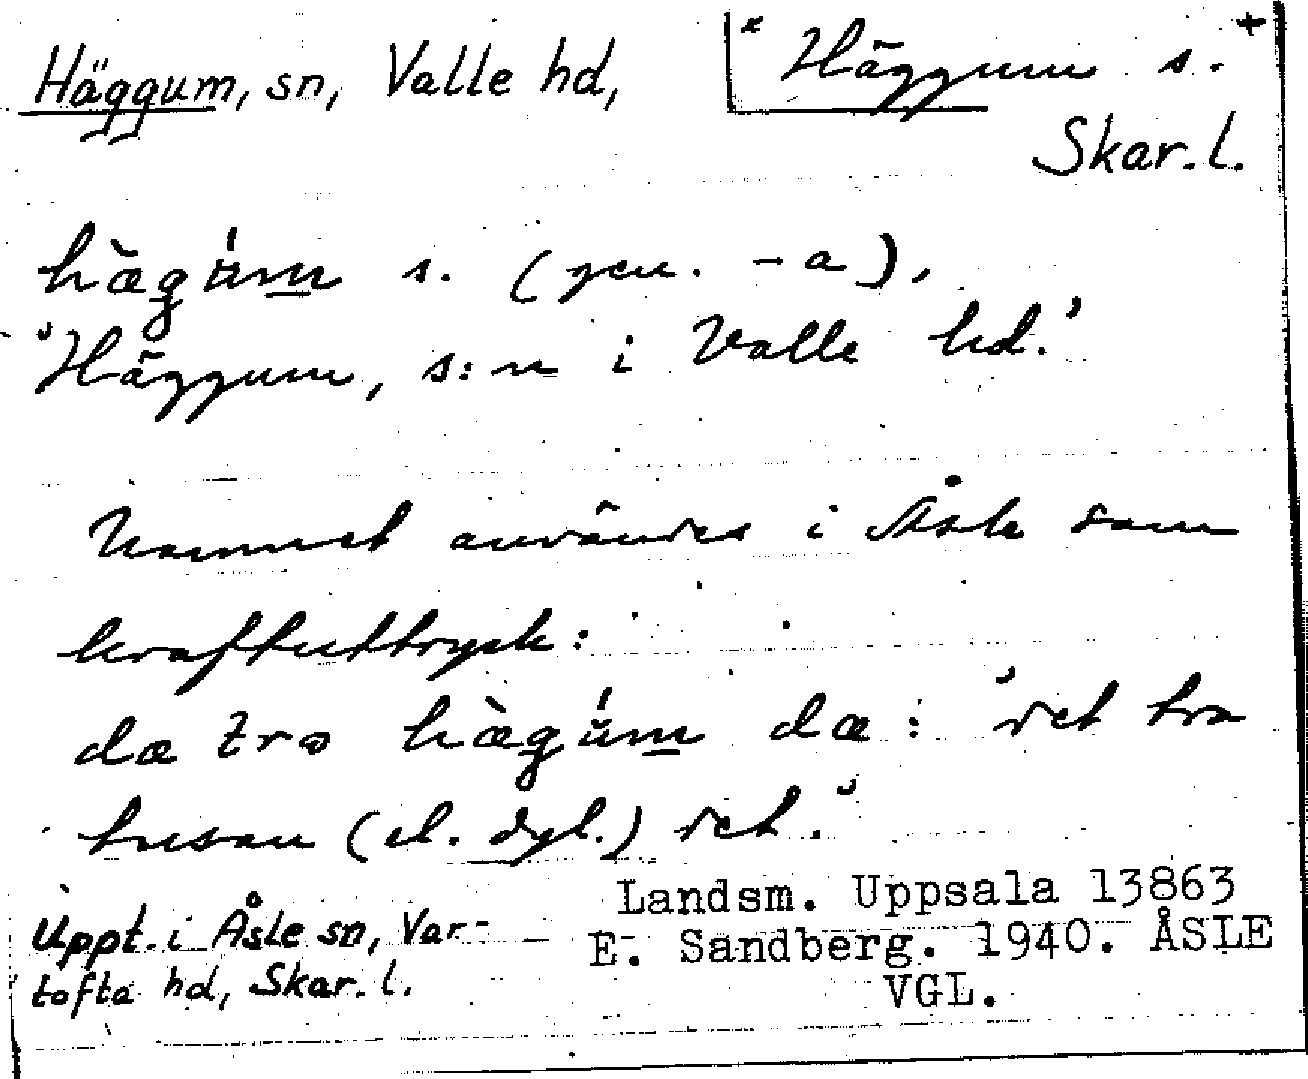 Häggum, sn, Valle hd,
Häggum s.
Skar. l.
hæ̀gúm s. (gen. -a),
'Häggum, s:n i Valle hd.'
Namnet användes i Åsle som
kraftuttryck:
dæ trɷ hæ̀gúm dæ: 'det tro
tusan (el. dyl.) det.'
Uppt. i Åsle sn, Var-
tofta hd, Skar. l.
Landsm. Uppsala 13863
E. Sandberg. 1940. ÅSLE
VGL.